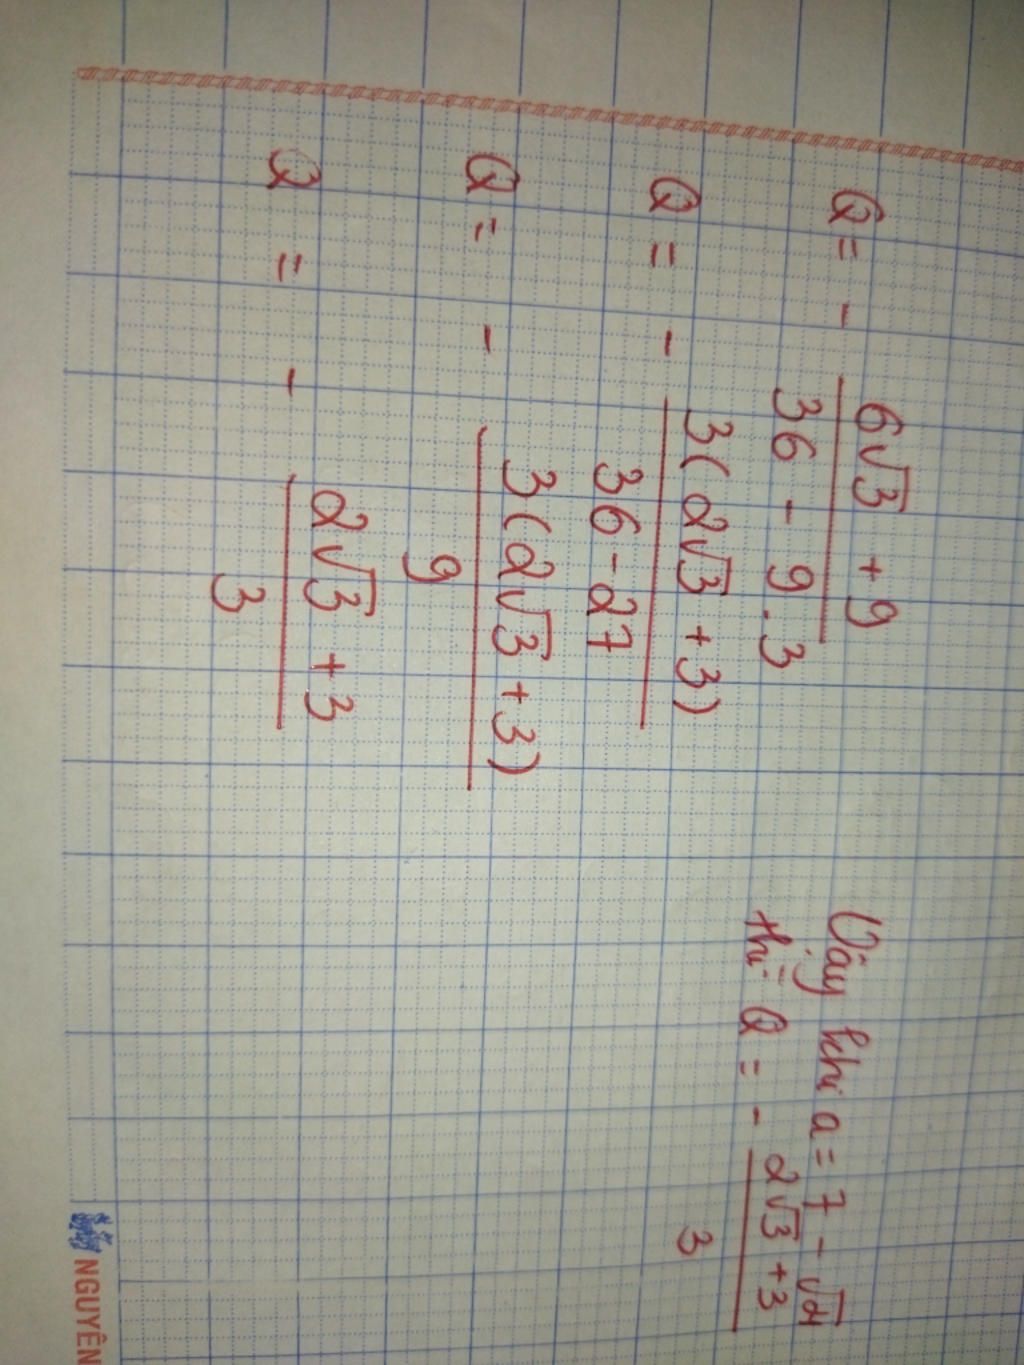 Q = - 6√3 + 9
36 - 9.3
Q = - 3(2√3 + 3)
36 - 27
Q = - 3(2√3 + 3)
9
Q = - 2√3 + 3
3
Vậy khi a = 7 -
thì Q = - 2√3 + 3
3
NGUYÊN